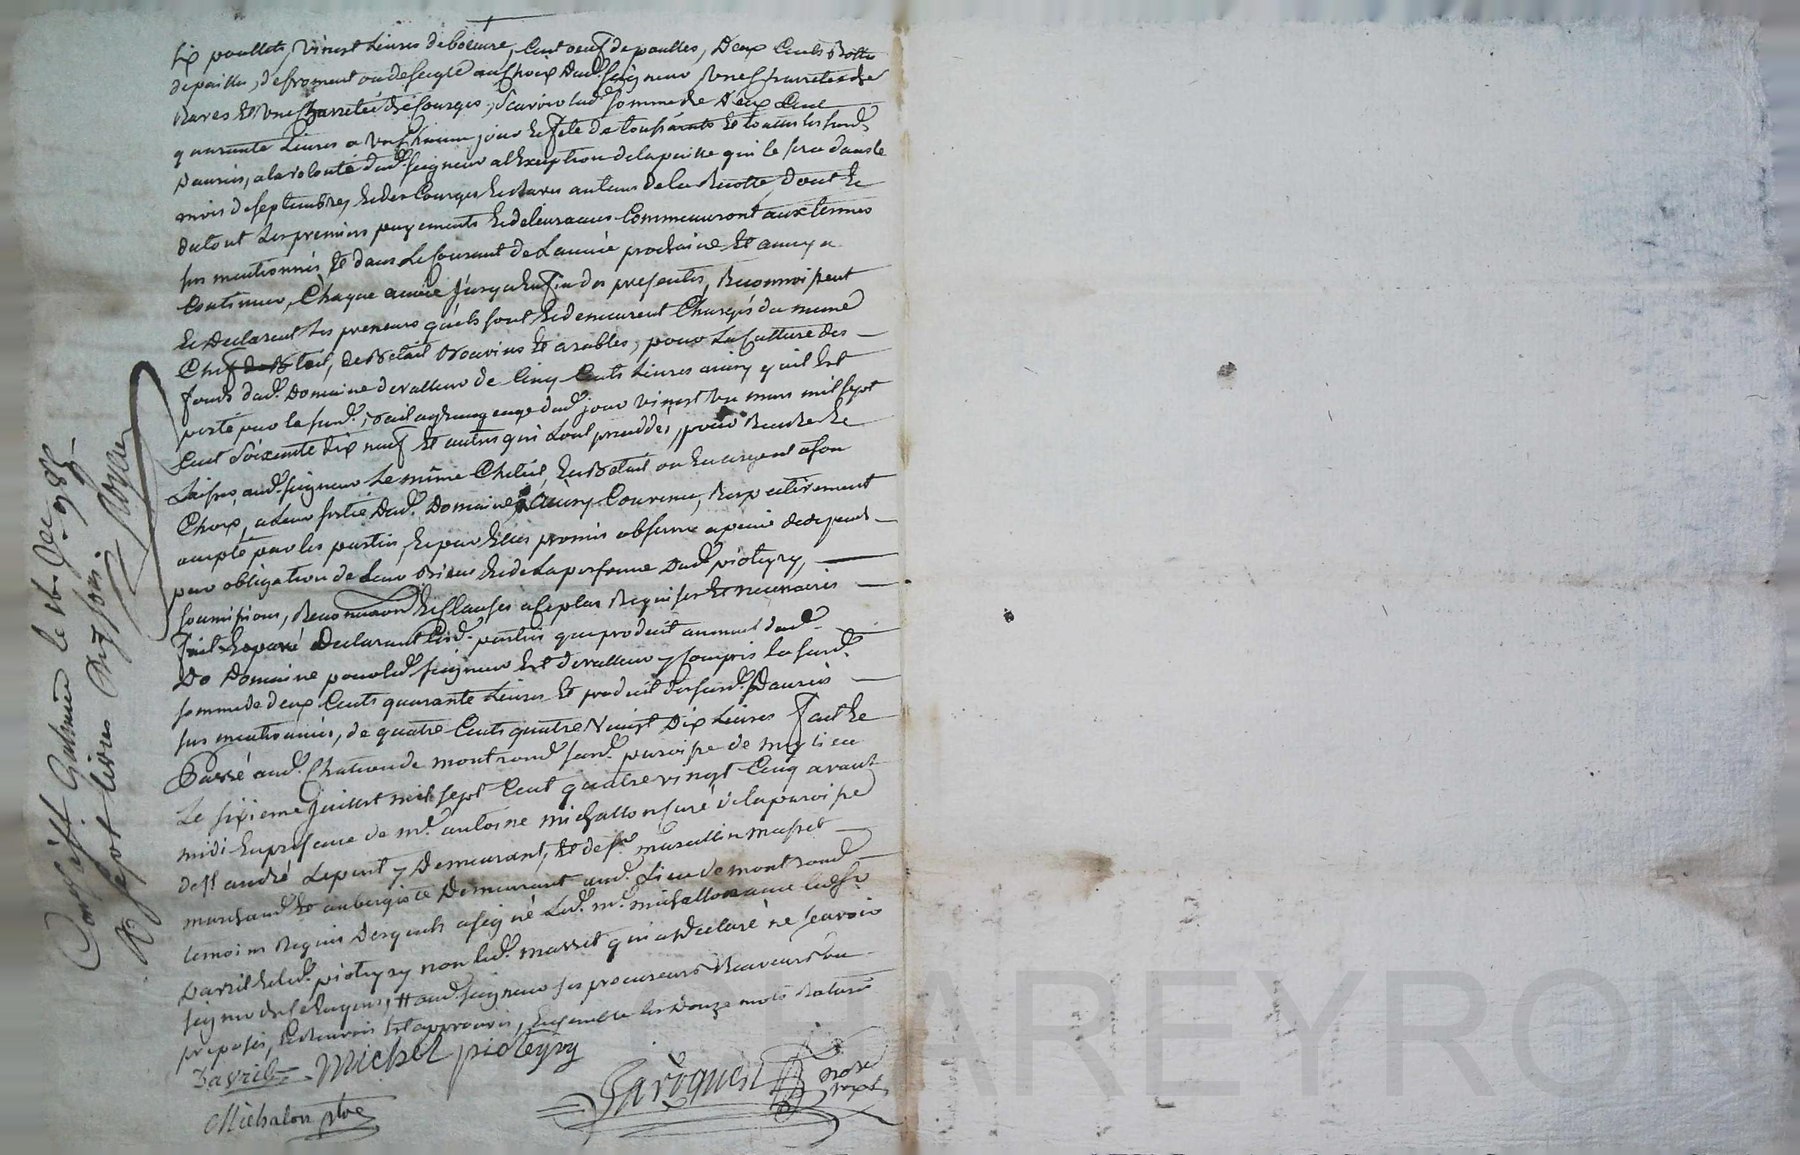 six poullets, vingt Livres de beurre, Cent oeufs de poulles, Deux Cents Bottes
de paille, de froment ou de seigle au choix Dud. seigneur, Une charretée de
Raves et Une Charretée de Courges, Scavoir lad. somme de Deux Cent
quarante Livres a Un Chacun jour et fete de toussaints et toutes les susd.
Danrées, a la volonté dud. seigneur a l'Exception de la paille qui le sera dans le
mois de septembre, et des Courges et Raves au tems de la Recolte, dont et
du tout Les premiers payements et delivrances Commenceront aux termes
sus mentionnés et dans Le Courant de L'année prochaine et ainsy a
Continuer, Chaque année jusqu'en fin des presentes, Reconnoissent
et Declarent Les preneurs qu'ils sont et demeurent Chargés du meme
Chepteil, de Betail Bouvins et arables, pour La Culture des
fonds dud. Domaine de valleur de Cinq Cents Livres ainsy qu'il est
porté par le susd. Bail a grangeage dud. jour vingt Un mars mil sept
Cent Soixante dix neuf et autres qui L'ont precédés, pour Rendre et
Laisser, aud. seigneur Le même Cheteil, En Betail ou En argent a son
Choix, a Leur sortie Dud. Domaine, Ainsy Convenu, Respectivement
accepté par les parties, et par Elles promis observer a peine de depens
par obligation de Leurs Biens et de La personne Dud. pioteyry,
soumissions, Renonciations et Clauses a ce plus Requises et necessaires
fait et passé Declarant Lesd. parties que produit annuel dud.
Do Domaine pour led. seigneur Est de valleur y Compris la susd.
somme de deux Cents quarante Livres et produit des susd. Danrées
sus mentionnées, de quatre Cents quatre Vingt Dix Livres fait et
Passé aud. Chateau de montrond susd. paroisse de meylieu
Le sixieme juillet mil sept Cent quatre vingt Cinq avant
midi En presence de mr. antoine michallon curé de la paroisse
de St andré Le puit y Demeurant, et de sr. marcellin masset
marchand et aubergiste Demeurant aud. Lieu de montrond
temoins Requis Desquels a signé Led. mr. michallon avec led. sr
Davril et led. pioteyry non led. massret qui a declaré ne scavoir
signer de ce Enquis, # aud. seigneur ses procureurs Receveurs ou
preposés, Ensemble les Douze mots Raturés
Davril Michel pioteyry
Michalon ptre
Jaroquest nore royal
Con. et Ctt Galmier le 16 Jer 1785
R sept livres Dix sols
Royer
CHAREYRON